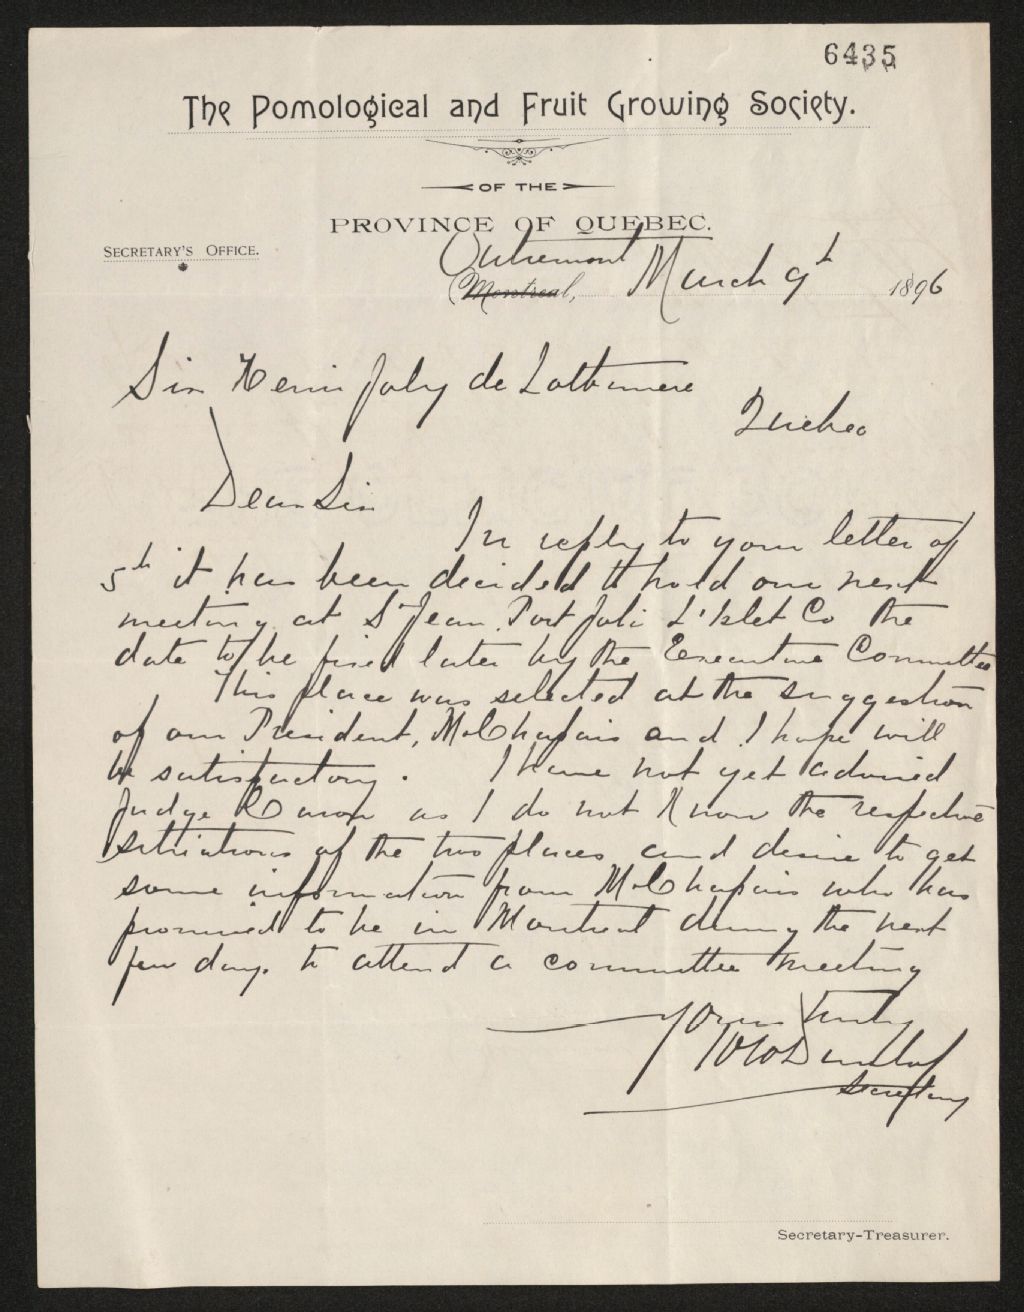 6435
The Pomological and Fruit Growing Society.
OF THE
PROVINCE OF QUEBEC.
SECRETARY'S OFFICE.
Outremont
Montreal, March 9th 1896
Sir Henri Joly de Lotbiniere
Quebec
Dear Sir
In reply to your letter of
5th it has been decided to hold our next
meeting at St Jean Port Joli L'Islet Co the
date to be fixed later by the Executive Committee
This place was selected at the suggestion
of our President, Mr Chapais and I hope will
be satisfactory. I have not yet advised
Judge Caron as I do not know the respective
situations of the two places and desire to get
some information from Mr Chapais who has
promised to be in Montreal during the next
few days to attend a committee meeting
Yours truly
Dunlop
Secretary
Secretary-Treasurer.